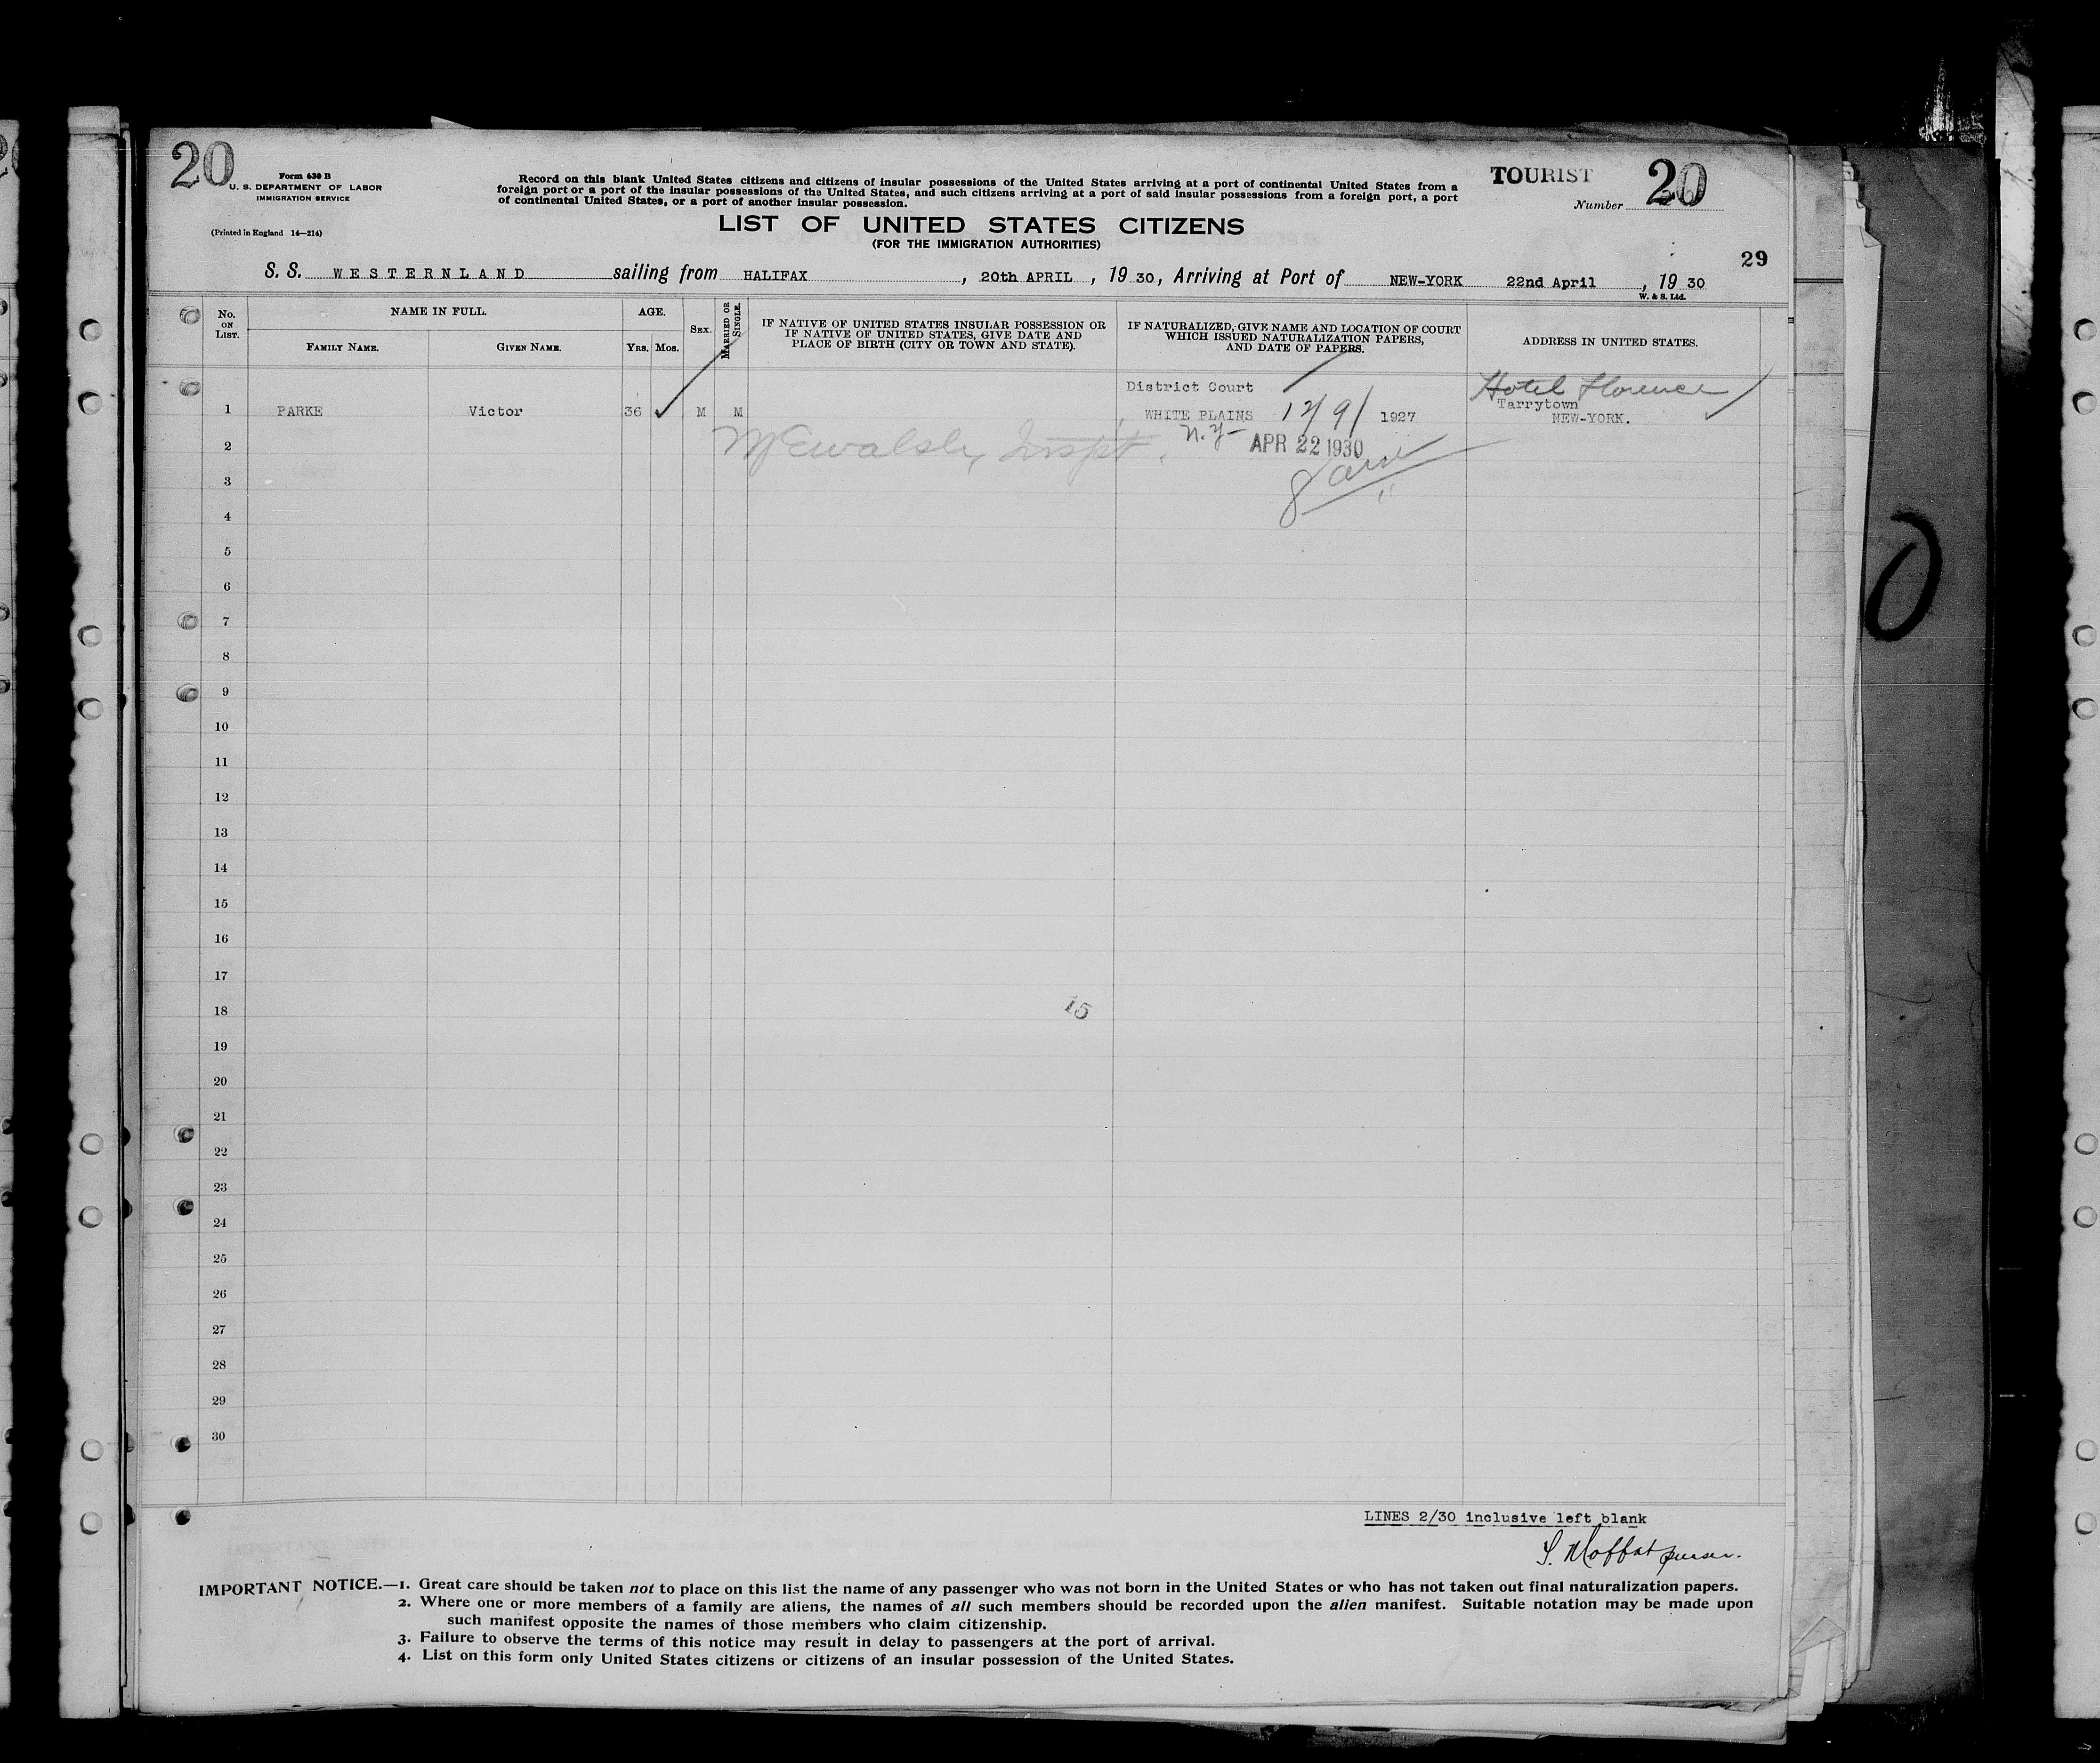 20
Form 630 B
U. S. DEPARTMENT OF LABOR
IMMIGRATION SERVICE
(Printed in England 14—214)
Record on this blank United States citizens and citizens of insular possessions of the United States arriving at a port of continental United States from a
foreign port or a port of the insular possessions of the United States, and such citizens arriving at a port of said insular possessions from a foreign port, a port
of continental United States, or a port of another insular possession.
TOURIST
Number 20
LIST OF UNITED STATES CITIZENS
(FOR THE IMMIGRATION AUTHORITIES)
29
S. S. WESTERNLAND sailing from HALIFAX, 20th APRIL, 19 30, Arriving at Port of NEW-YORK 22nd April, 19 30
W. & S. Ltd.
No. ON LIST.
NAME IN FULL.
FAMILY NAME.
GIVEN NAME.
AGE.
YRS. MOS.
SEX.
MARRIED OR SINGLE.
IF NATIVE OF UNITED STATES INSULAR POSSESSION OR
IF NATIVE OF UNITED STATES, GIVE DATE AND
PLACE OF BIRTH (CITY OR TOWN AND STATE).
IF NATURALIZED, GIVE NAME AND LOCATION OF COURT
WHICH ISSUED NATURALIZATION PAPERS,
AND DATE OF PAPERS.
ADDRESS IN UNITED STATES.
District Court
Hotel Florence
Tarrytown
1 PARKE Victor 36 M M WHITE PLAINS 12/9/ 1927 NEW-YORK.
N.Y.
2 APR 22 1930
3
4
5
6
7
8
9
10
11
12
13
14
15
16
17
18
15
19
20
21
22
23
24
25
26
27
28
29
30
LINES 2/30 inclusive left blank
Moffat purser.
IMPORTANT NOTICE.—1. Great care should be taken not to place on this list the name of any passenger who was not born in the United States or who has not taken out final naturalization papers.
2. Where one or more members of a family are aliens, the names of all such members should be recorded upon the alien manifest. Suitable notation may be made upon
such manifest opposite the names of those members who claim citizenship.
3. Failure to observe the terms of this notice may result in delay to passengers at the port of arrival.
4. List on this form only United States citizens or citizens of an insular possession of the United States.